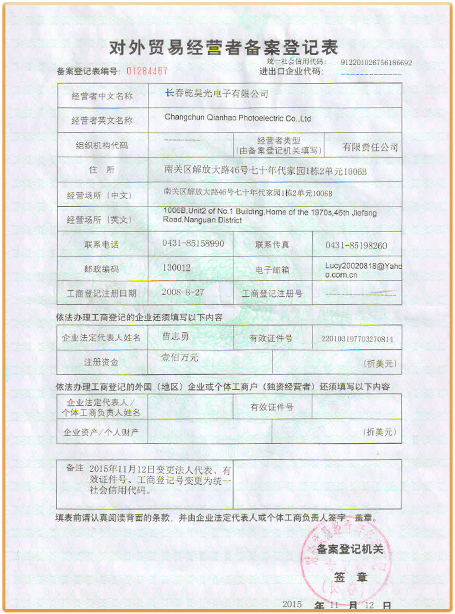 对外贸易经营者备案登记表
统一社会信用代码: 912201026756186692
备案登记表编号: 01284467 进出口企业代码:
经营者中文名称 长春乾昊光电子有限公司
经营者英文名称 Changchun Qianhao Photoelectric Co.,Ltd
组织机构代码 经营者类型 有限责任公司
(由备案登记机关填写)
住所 南关区解放大路46号七十年代家园1栋2单元1006B
经营场所(中文) 南关区解放大路46号七十年代家园1栋2单元1006B
经营场所(英文) 1006B,Unit2 of No.1 Building,Home of the 1970s,46th Jiefang
Road,Nanguan District
联系电话 0431-85158990 联系传真 0431-85198260
邮政编码 130012 电子邮箱 Lucy20020818@Yaho
o.com.cn
工商登记注册日期 2008-8-27 工商登记注册号
依法办理工商登记的企业还须填写以下内容
企业法定代表人姓名 曹志勇 有效证件号 220103197703270814
注册资金 壹佰万元 (折美元)
依法办理工商登记的外国(地区)企业或个体工商户(独资经营者)还须填写以下内容
企业法定代表人/ 有效证件号
个体工商负责人姓名
企业资产/个人财产 (折美元)
备注 2015年11月12日变更法人代表、有
效证件号、工商登记号变更为统一
社会信用代码。
填表前请认真阅读背面的条款,并由企业法定代表人或个体工商负责人签字、盖章。
备案登记机关
签 章
2015 年 11 月 12 日